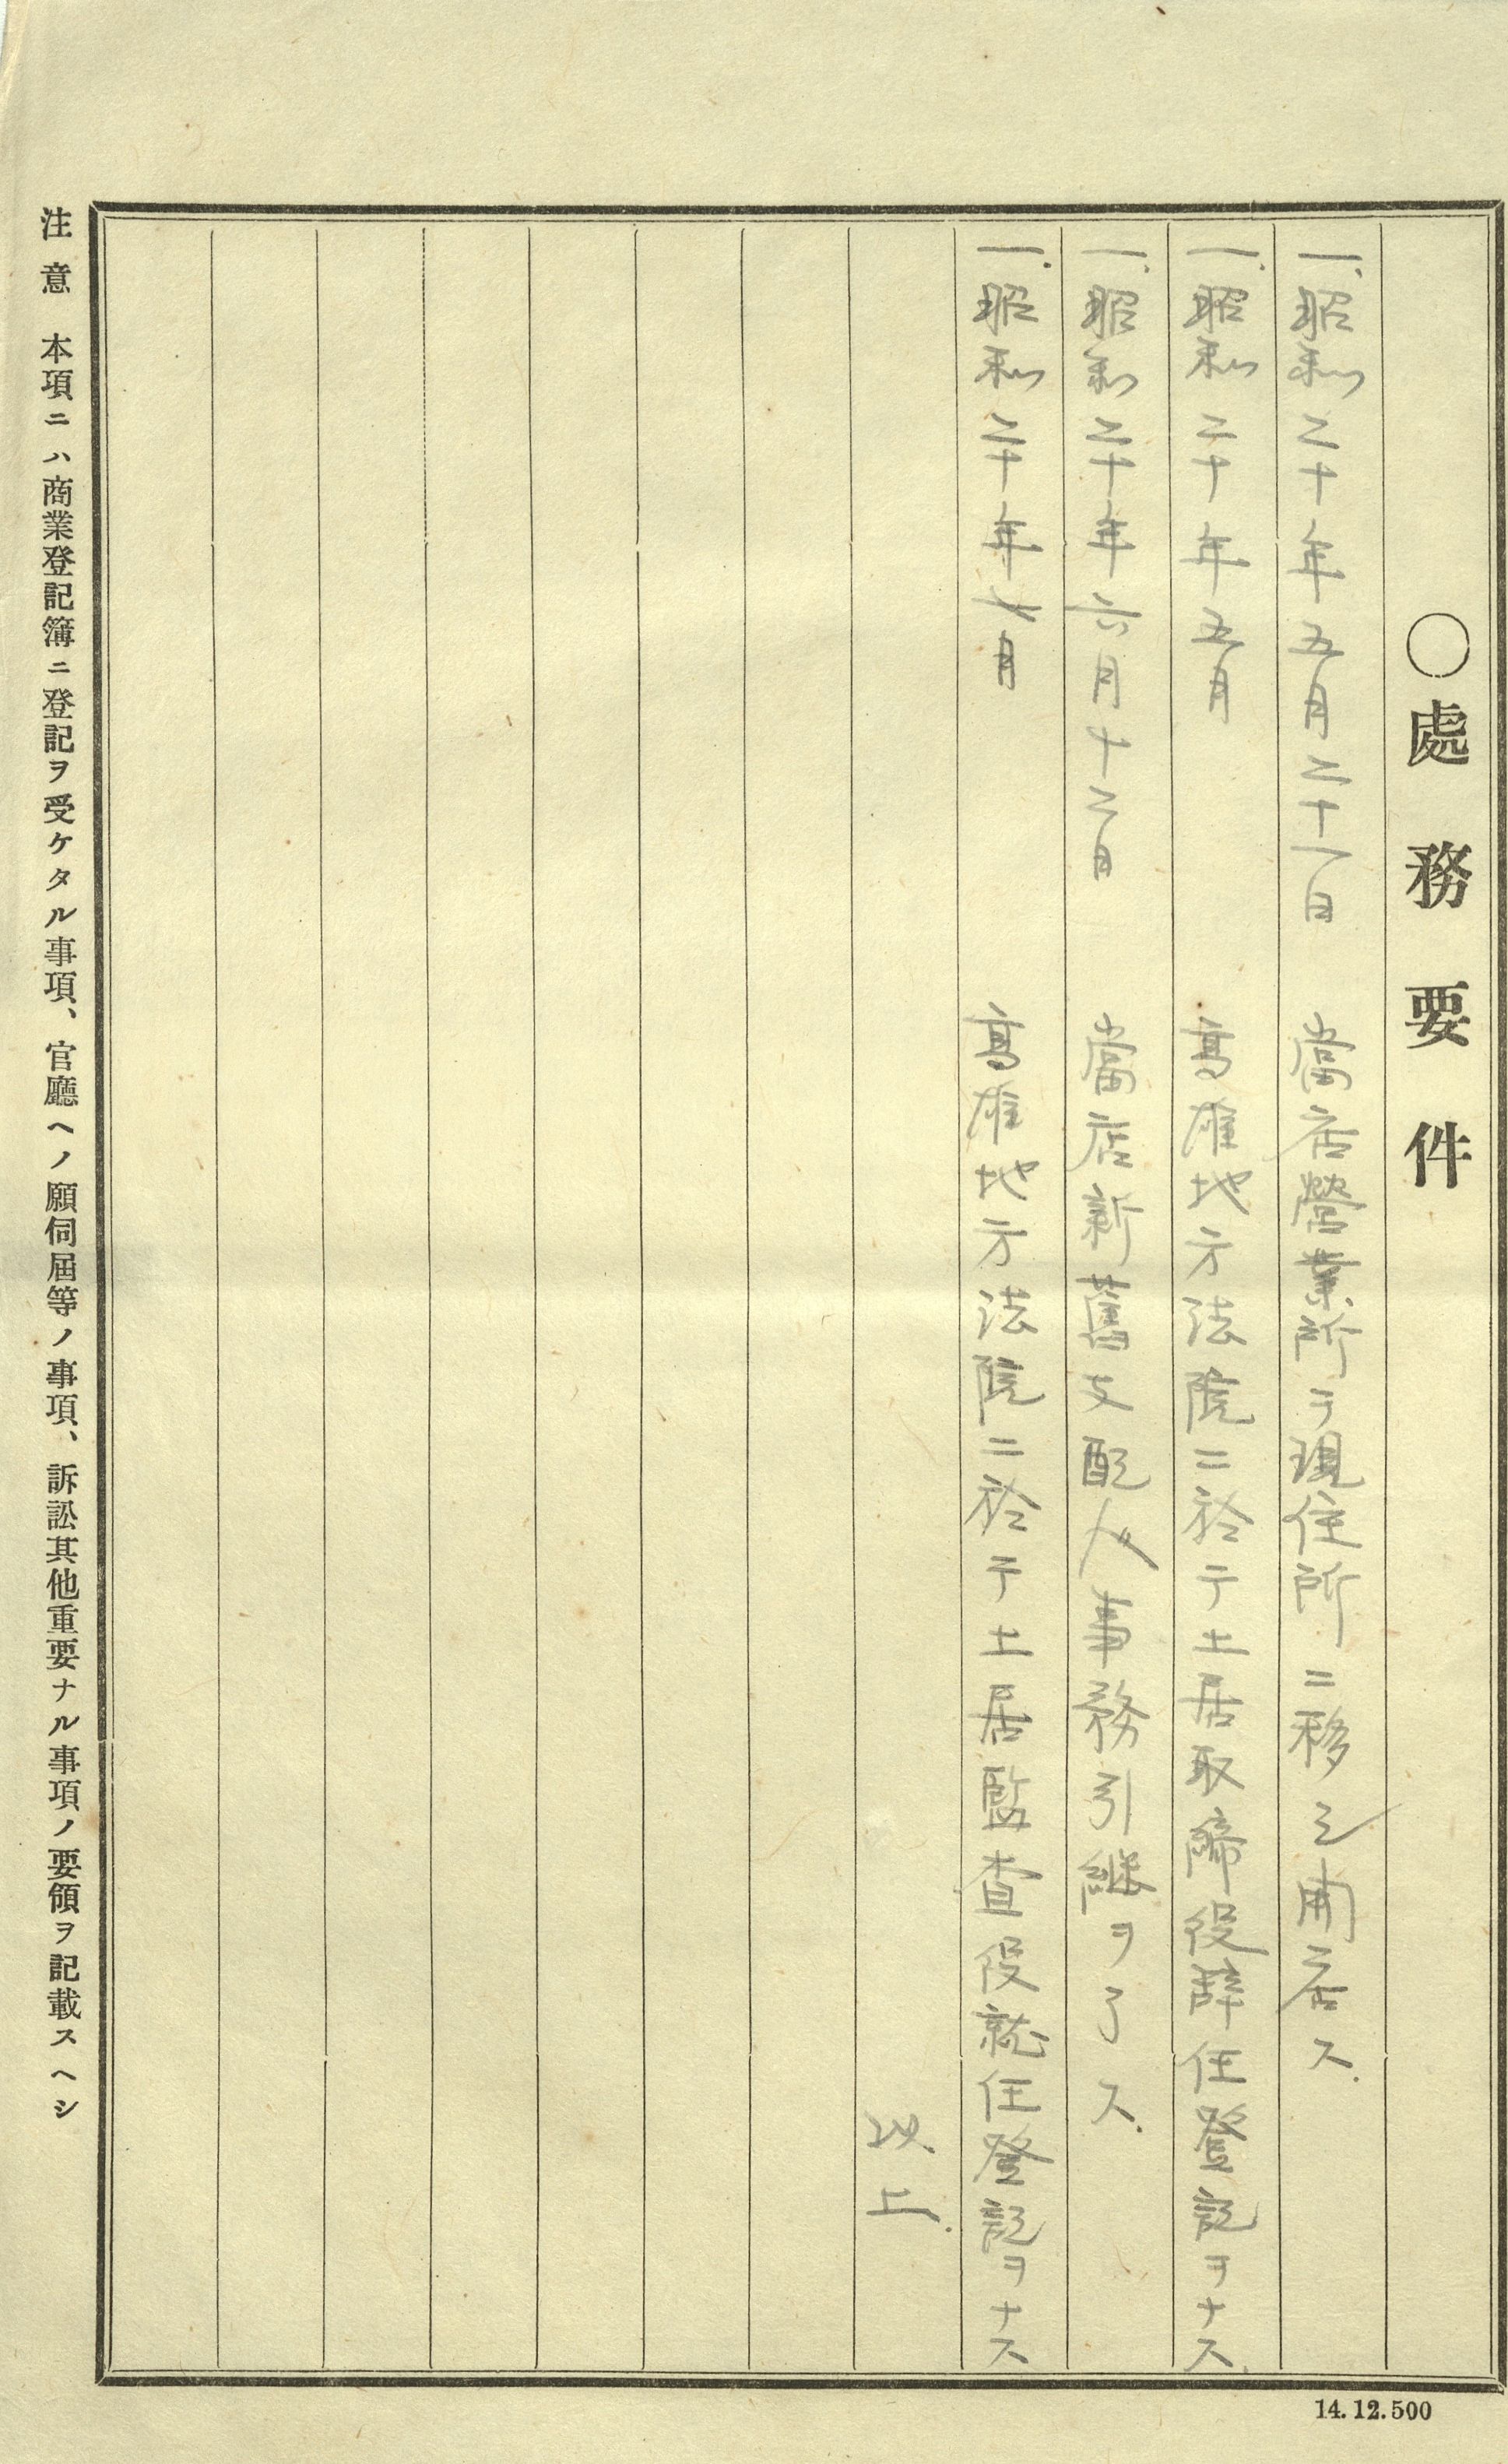 〇處務要件
一、昭和二十年五月二十一日 當店營業所ヲ現住所ニ移シ開店ス.
一、昭和二十年五月 高雄地方法院ニ於テ土居取締役辞任登記ヲナス.
一、昭和二十年六月十二日 當店新舊支配人事務引継ヲ了ス.
一、昭和二十年七月 高雄地方法院ニ於テ土居監査役就任登記ヲナス
以上.
注意 本項ニハ商業登記簿ニ登記ヲ受ケタル事項、官廳ヘノ願伺屆等ノ事項、訴訟其他重要ナル事項ノ要領ヲ記載スヘシ
14.12.500